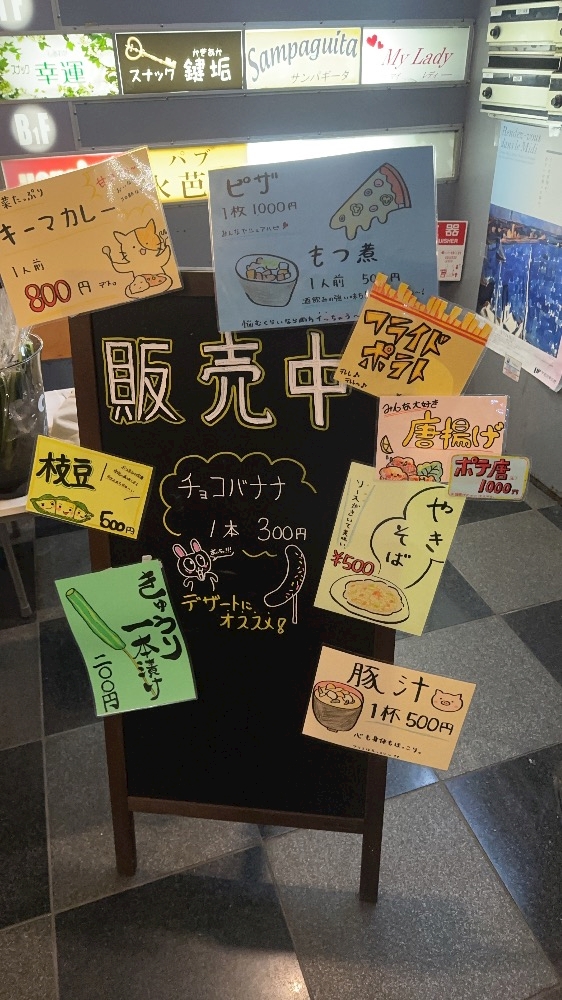 スナック 幸運
かぎあか
スナック 鍵垢
Sampaguita
サンパギータ
My Lady
B1F
パブ
火芭
器
菜たっぷり
キーマカレー
1人前
800円
ピザ
1枚 1000円
もつ煮
1人前 500円
フライド
ポテト
みんな大好き
唐揚げ
ポテ唐
1000円
販売中
枝豆
500円
チョコバナナ
1本 300円
デザートに
オススメ!
やき
そば
ソースがきいて美味い
¥500
きゅうり
一本漬け
二〇〇円
豚汁
1杯 500円
心も身体もほっこり。